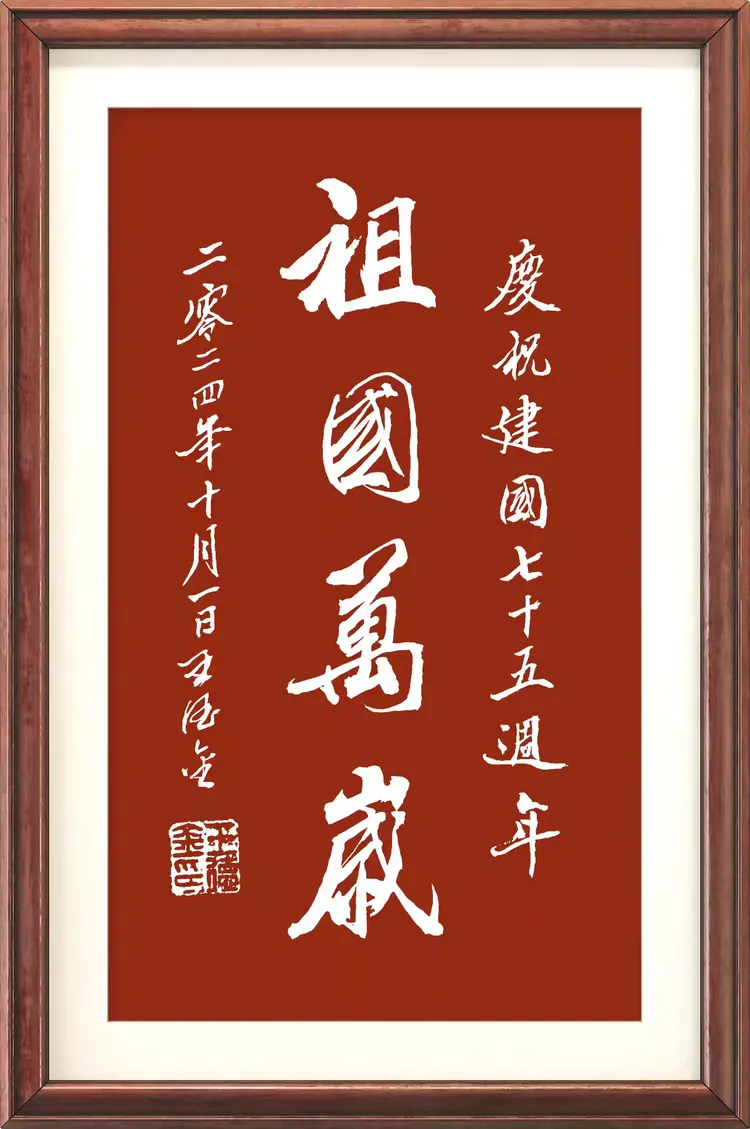 慶祝建國七十五週年
祖國萬歲
二零二四年十月一日王德金
王德金印